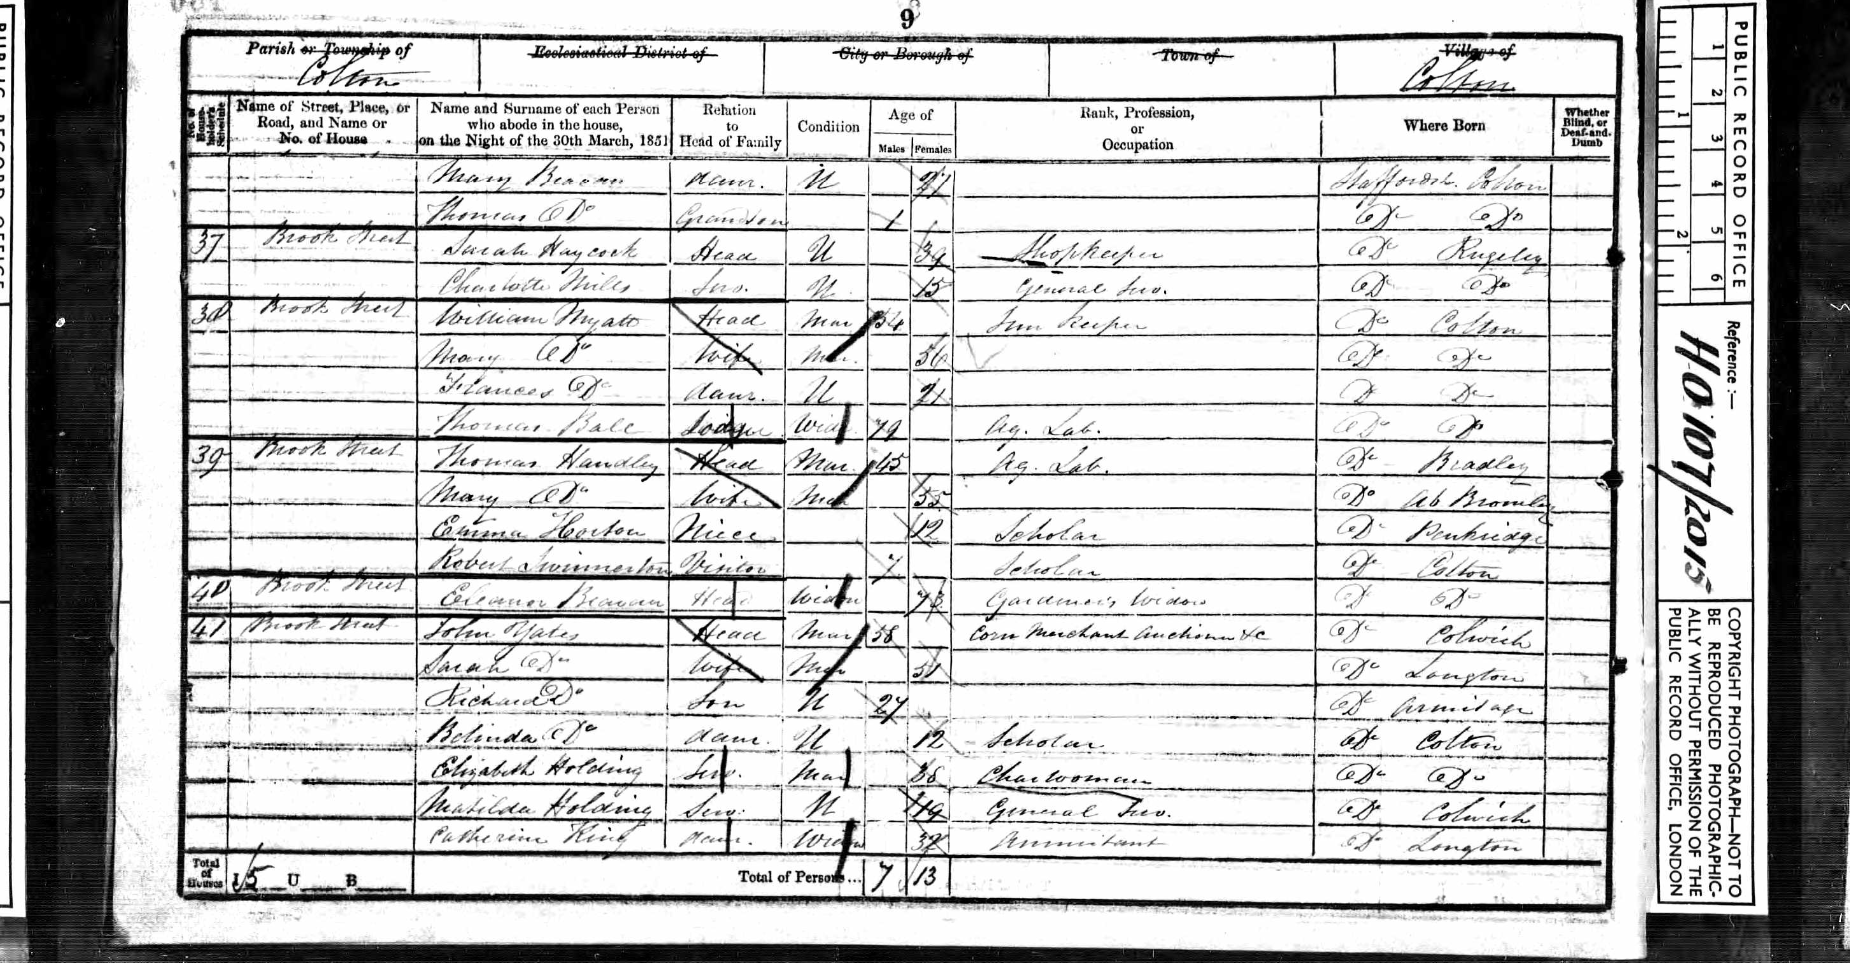 9
Parish or Township of Ecclesiastical District of City or Borough of Town of Village of
Colton Colton
No. of House-holder's Schedule Name of Street, Place, or Road, and Name or No. of House Name and Surname of each Person who abode in the house, on the Night of the 30th March, 1851 Relation to Head of Family Condition Age of Males Females Rank, Profession, or Occupation Where Born Whether Blind, or Deaf-and-Dumb
Mary daur. U 27 Staffordsh. Colton
Thomas Do Grandson 1 Do Do
37 Brook Street Sarah Haycock Head U 39 Shopkeeper Do Rugeley
Charlotte Mills Serv. U 15 General Serv. Do Do
38 Brook Street William Wyatt Head Mar 54 Inn Keeper Do Colton
Mary Do Wife Mar. 56 Do Do
Frances Do daur. U 21 D Do
Thomas Ball Lodger Widr 79 Ag. Lab. Do Do
39 Brook Street Thomas Handley Head Mar. 45 Ag. Lab. Do Bradley
Mary Do Wife Mar 55 Do Ab Bromley
Emma Horton Niece 12 Scholar Do Penkridge
Robert Swinnerton Visitor 7 Scholar Do Colton
40 Brook Street Eleanor Head Widow 73 Gardener's Widow D Do
41 Brook Street John Yates Head Mar 58 Corn Merchant Auctioneer &c Do Colwich
Sarah Do Wife Mar 51 Do Longton
Richard Do Son U 27 Do Armitage
Belinda Do daur. U 12 Scholar Do Colton
Elizabeth Holding Serv. Mar 38 Charwoman Do Do
Matilda Holding Serv. U 19 General Serv. Do Colwich
Catherine King daur. Widow 32 Annuitant Do Longton
Total of Houses I 5 U B Total of Persons... 7 13
PUBLIC RECORD OFFICE
1 2 3 4 5 6
1 2
Reference :—
HO 107/2015
COPYRIGHT PHOTOGRAPH—NOT TO
BE REPRODUCED PHOTOGRAPHIC-
ALLY WITHOUT PERMISSION OF THE
PUBLIC RECORD OFFICE, LONDON